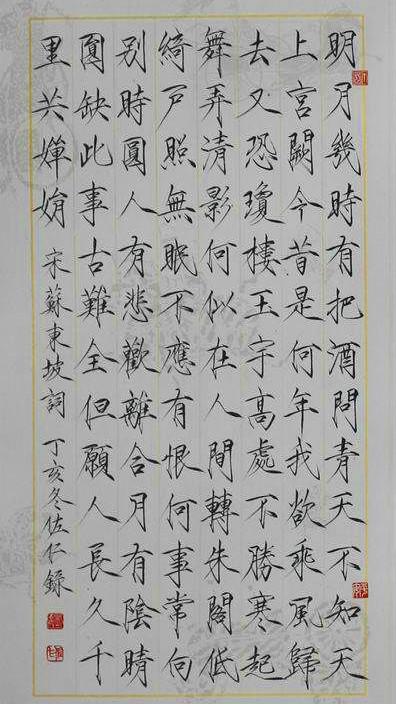 明月幾時有把酒問青天不知天
上宮闕今昔是何年我欲乘風歸
去又恐瓊樓玉宇高處不勝寒起
舞弄清影何似在人間轉朱閣低
綺戶照無眠不應有恨何事常向
别時圓人有悲歡離合月有陰晴
圓缺此事古難全但願人長久千
里共嬋娟 宋蘇東坡詞 丁亥冬佐仁錄